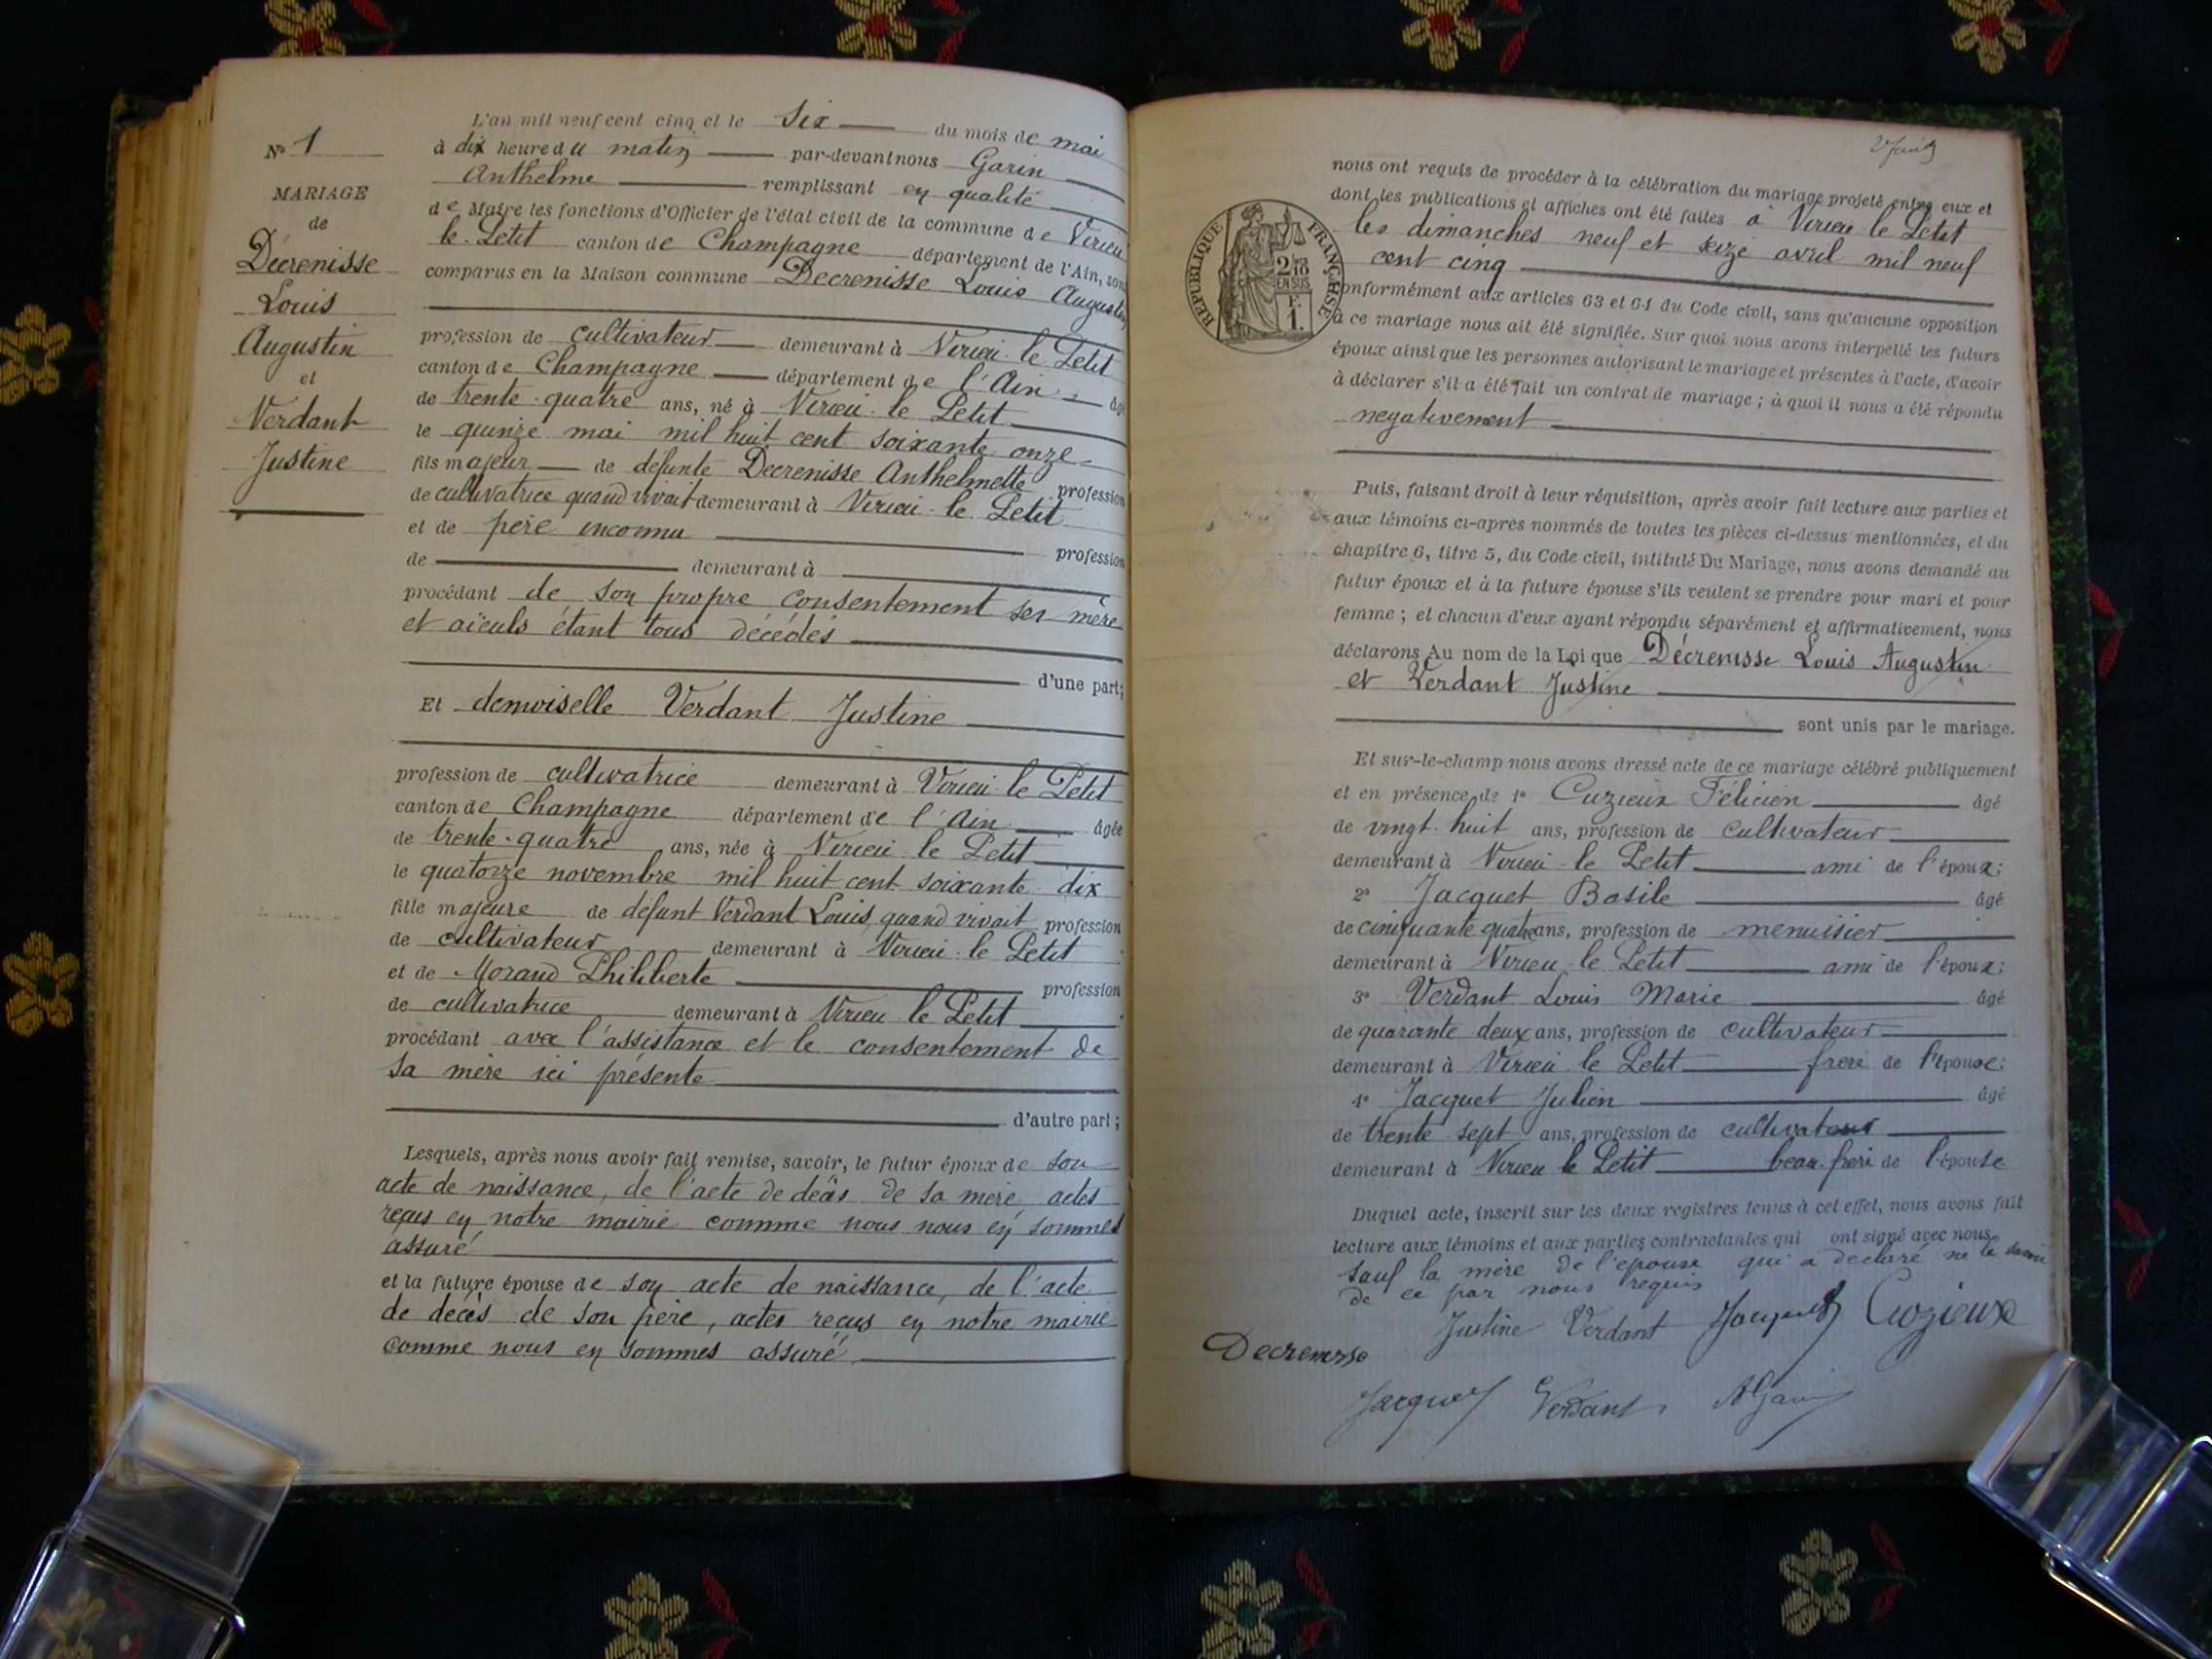 N° 1
MARIAGE
de
Décrenisse
Louis
Augustin
et
Verdant
Justine
L'an mil neuf cent cinq et le Six du mois de mai
à dix heure du matin par-devant nous Garin
Anthelme remplissant en qualité
de Maire les fonctions d'Officier de l'état civil de la commune de Virieu
le Petit canton de Champagne département de l'Ain, sont
comparus en la Maison commune Decrenisse Louis Augustin
profession de cultivateur demeurant à Virieu le Petit
canton de Champagne département de l'Ain âgé
de trente-quatre ans, né à Virieu le Petit
le quinze mai mil huit cent soixante onze
fils majeur de defunte Decrenisse Anthelmette profession
de cultivatrice quand vivait demeurant à Virieu-le Petit
et de père inconnu
profession
de demeurant à
procédant de son propre consentement ses mère
et aïeuls étant tous décédés
d'une part;
Et demoiselle Verdant Justine
profession de cultivatrice demeurant à Virieu le Petit
canton de Champagne département de l'Ain âgée
de trente-quatre ans, née à Virieu le Petit
le quatorze novembre mil huit cent soixante-dix
fille majeure de défunt Verdant Louis, quand vivait profession
de cultivateur demeurant à Virieu-le Petit
et de Morand Philiberte profession
de cultivatrice demeurant à Virieu le Petit
procédant avec l'assistance et le consentement de
sa mère ici présente
d'autre part;
Lesquels, après nous avoir fait remise, savoir, le futur époux de son
acte de naissance, de l'acte de décès de sa mère, actes
reçus en notre mairie comme nous nous en sommes
assuré
et la future épouse de son acte de naissance, de l'acte
de décès de son père, actes reçus en notre mairie
comme nous en sommes assuré.
nous ont requis de procéder à la célébration du mariage projeté entre eux et
dont les publications et affiches ont été faites à Virieu le Petit
les dimanches neuf et seize avril mil neuf
cent cinq
RÉPUBLIQUE FRANÇAISE
2/10
EN SUS
F.
1.
conformément aux articles 63 et 64 du Code civil, sans qu'aucune opposition
à ce mariage nous ait été signifiée. Sur quoi nous avons interpellé les futurs
époux ainsi que les personnes autorisant le mariage et présentes à l'acte, d'avoir
à déclarer s'il a été fait un contrat de mariage; à quoi il nous a été répondu
negativement
Puis, faisant droit à leur réquisition, après avoir fait lecture aux parties et
aux témoins ci-après nommés de toutes les pièces ci-dessus mentionnées, et du
chapitre 6, titre 5, du Code civil, intitulé Du Mariage, nous avons demandé au
futur époux et à la future épouse s'ils veulent se prendre pour mari et pour
femme; et chacun d'eux ayant répondu séparément et affirmativement, nous
déclarons Au nom de la Loi que Décrenisse Louis Augustin
et Verdant Justine
sont unis par le mariage.
Et sur-le-champ nous avons dressé acte de ce mariage célébré publiquement
et en présence de 1° Cuzieux Félicien âgé
de vingt-huit ans, profession de cultivateur
demeurant à Virieu-le Petit ami de l'époux;
2° Jacquet Basile âgé
de cinquante quatre ans, profession de menuisier
demeurant à Virieu-le Petit ami de l'époux;
3° Verdant Louis Marie âgé
de quarante deux ans, profession de cultivateur
demeurant à Virieu le Petit frere de l'épouse;
4° Jacquet Julien âgé
de trente sept ans, profession de cultivateur
demeurant à Virieu le Petit beau-frere de l'épouse
Duquel acte, inscrit sur les deux registres tenus à cet effet, nous avons fait
lecture aux témoins et aux parties contractantes qui ont signé avec nous
sauf la mère de l'épouse qui a declaré ne le savoir
de ce par nous requis
Justine Verdant Jacquet Cuzieux
Decrenisse
Jacquet Verdant A Garin